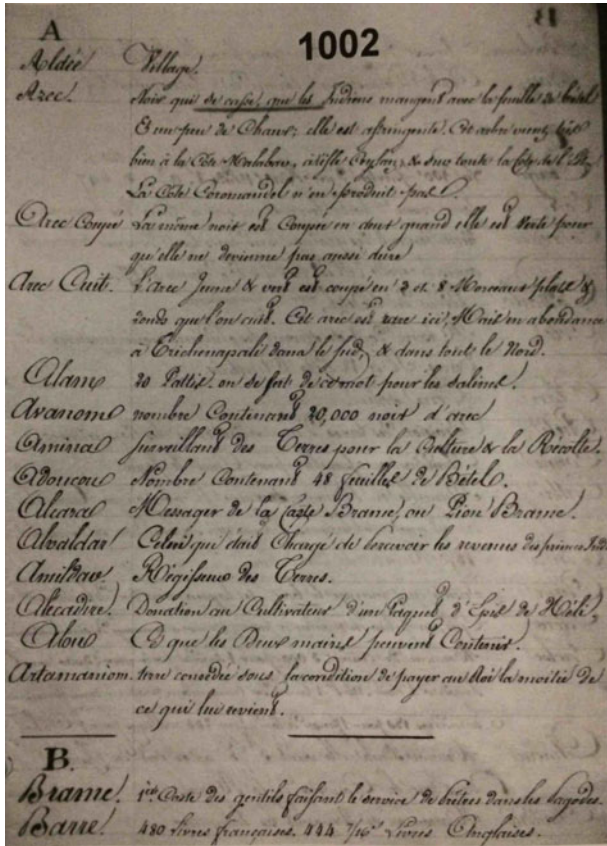 A
1002
Aldée Village.
Arec. Noix qui se casse, que les Indiens mangent avec la feuille de bétel
& un peu de Chaux; elle est astringente. Cet arbre vient très
bien à la Côte Malabar, à l'isle Ceylan, & dans toute la
La Côte Coromandel n'en produit pas.
Arec Coupé La même noix est Coupée en dont quand elle est verte pour
qu'elle ne devienne pas aussi dure
Arec Cuit. L'arec Jeune & vert est coupé en 2 et 8 Morceaux plats &
ronds que l'on cuit. Cet arec est rare ici, Mais en abondance
à Trichenapali dans le sud, & dans tout le Nord.
Alam 20 Pattis. on se sert de ce mot pour les salines.
Avanom nombre Contenant 20,000 noix d'arec
Amina Surveillant des Terres pour la Culture & la Récolte.
Adoucou Nombre Contenant 48 feuilles de Bétel.
Alcara Messager de la Caste Brame, ou Pion Brame.
Alvaldar Celui qui était Chargé de percevoir les revenus des princes
Amildar Régisseur des Terres.
Alecadire. Donation au Cultivateur d'un Paquet d'Epis de Néli,
Alou Ce que les Deux mains peuvent Contenir.
Artamaniom. terre concédée sous la condition de payer au Roi la moitié de
ce qui lui revient.
B.
Brame. 1re Caste des gentils faisant le service de Prêtres dans les Pagodes.
Barre. 480 livres françaises. 444 7/16 Livres Anglaises.